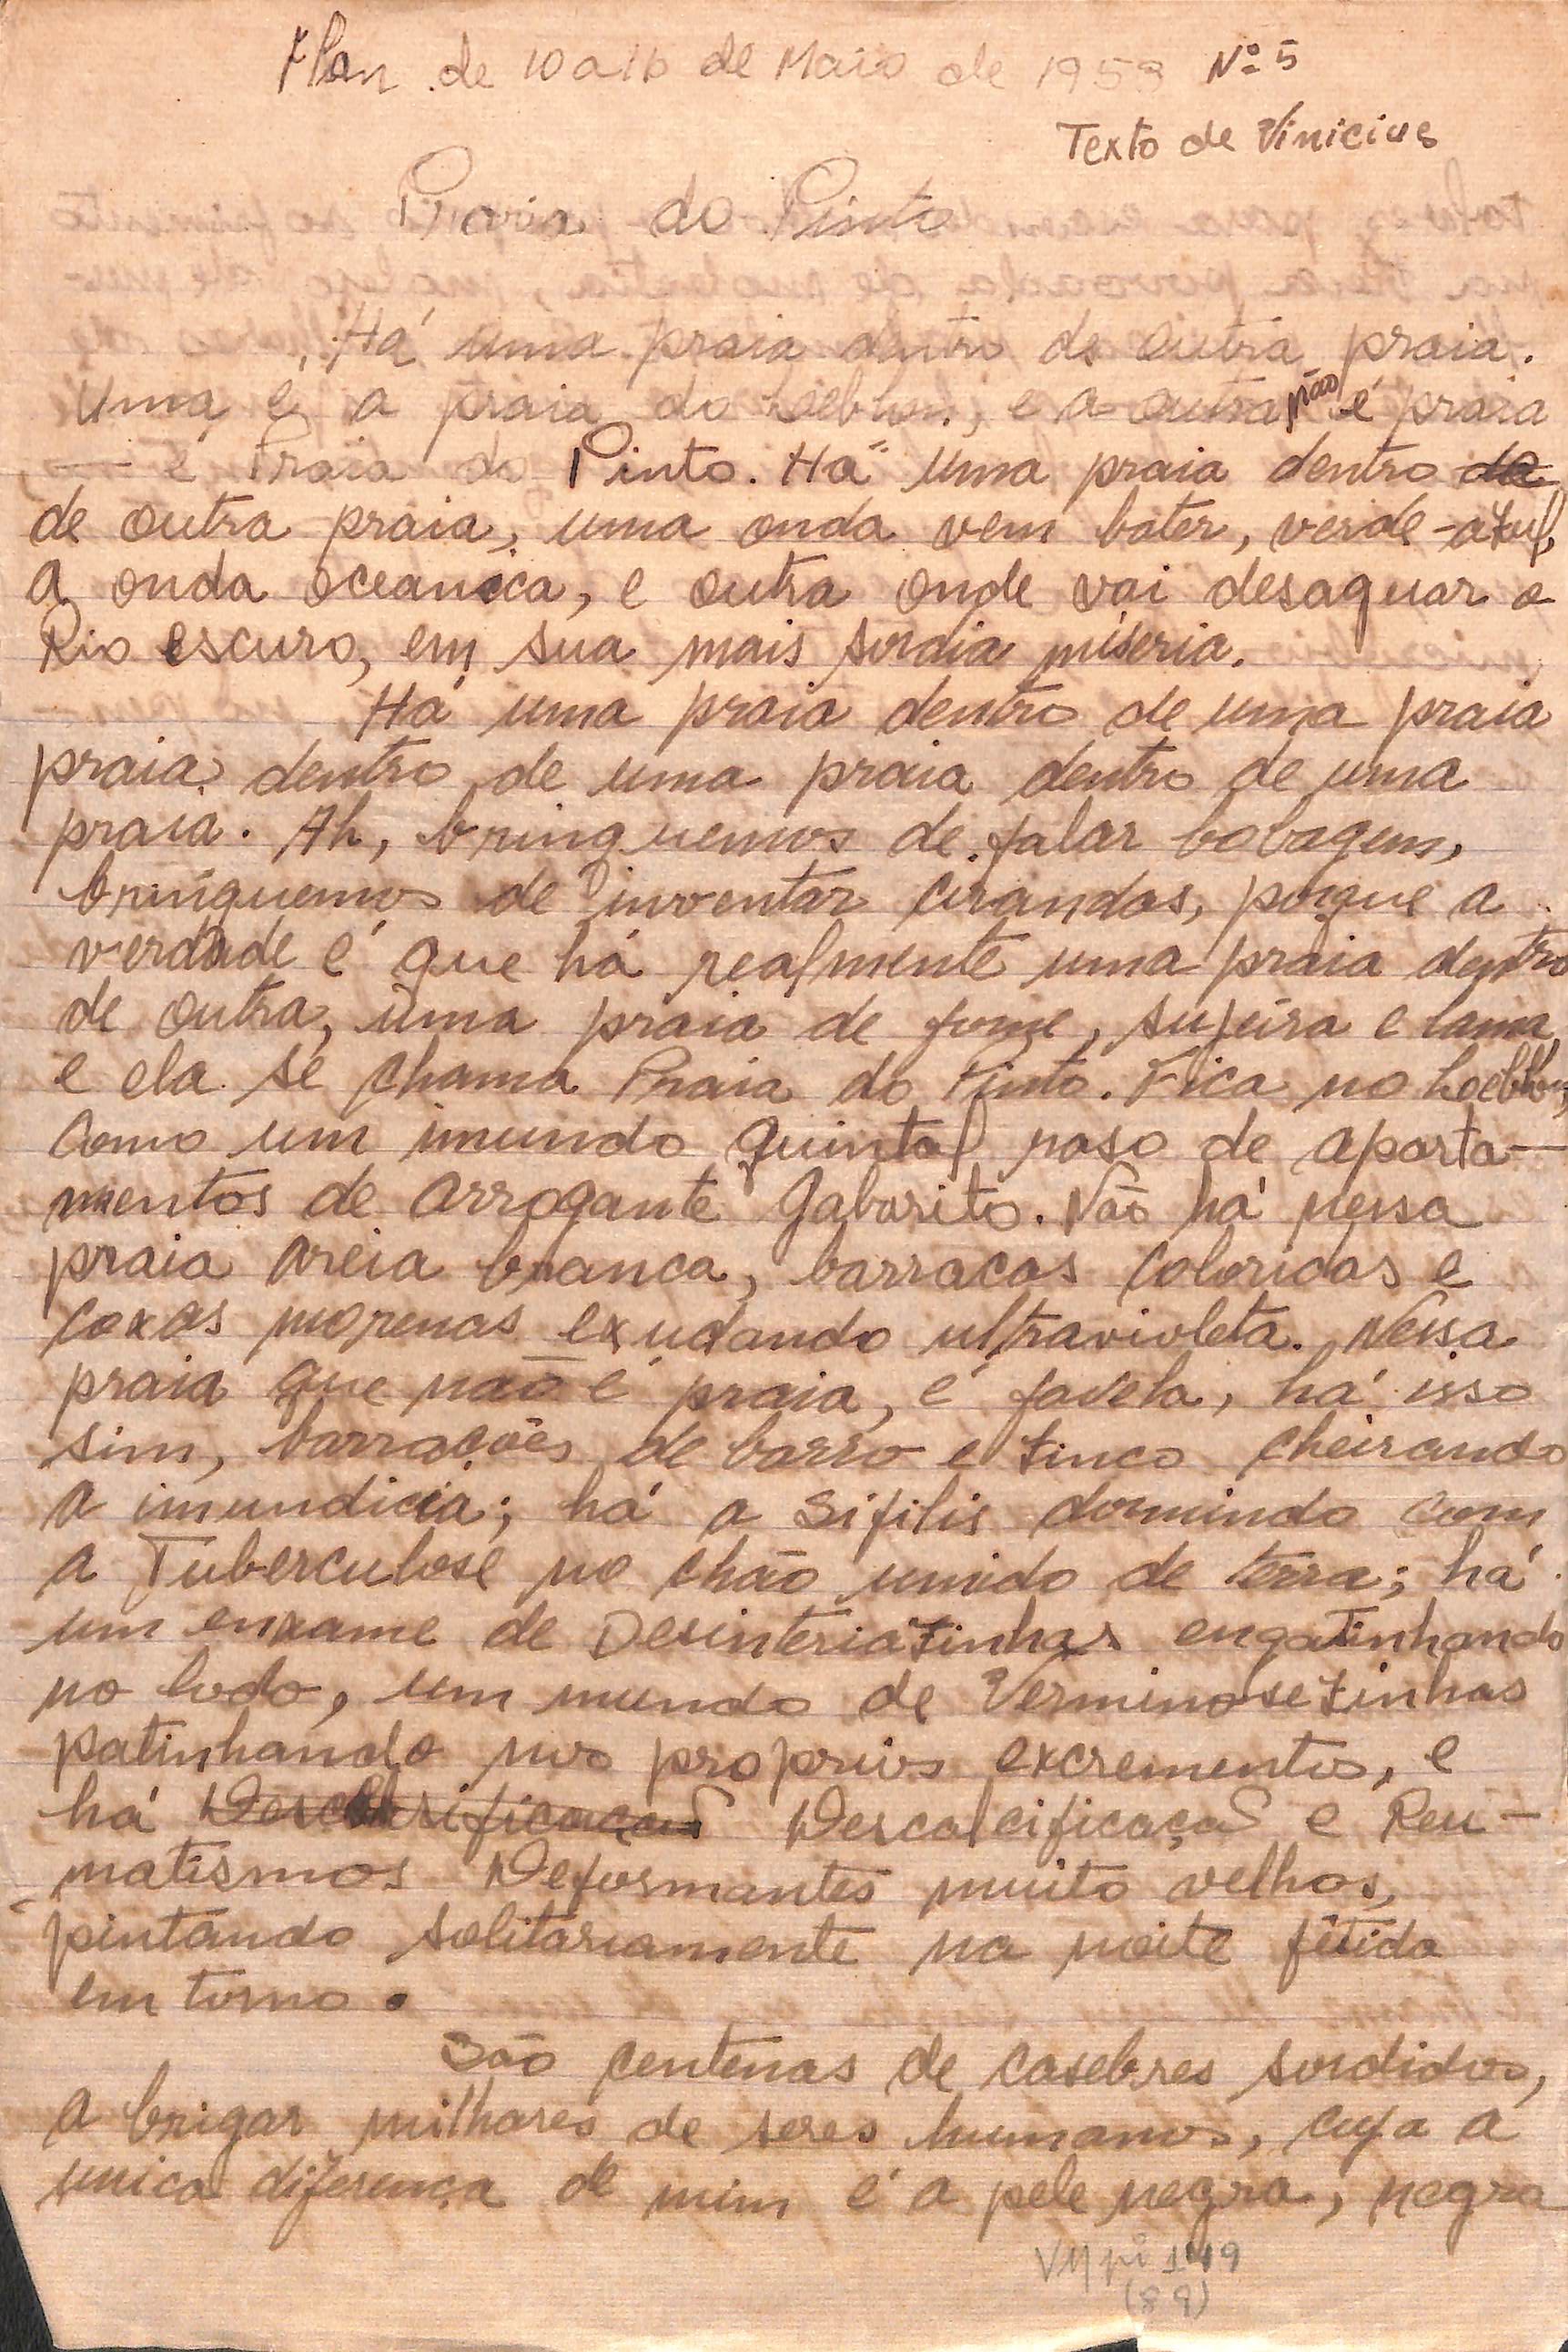 Flan de 10 a 16 de Maio de 1953 Nº 5
Texto de Vinicius
Praia do Pinto
Há uma praia dentro de outra praia.
Uma é a praia do Leblon, e a outra não é praia
— é Praia do Pinto. Há uma praia dentro da
de outra praia, uma onda vem bater, verde-azul,
a onda oceanica, e outra onde vai desaguar o
Rio escuro, em sua mais sordia miseria.
Há uma praia dentro de uma praia
praia dentro de uma praia dentro de uma
praia. Ah, brinquemos de falar bobagem,
brinquemos de inventar cirandas, porque a
verdade é que há realmente uma praia dentro
de outra, uma praia de fome, sujeira e lama
e ela se chama Praia do Pinto. Fica no Leblon,
como um imundo quintal raso de aparta-
mentos de arrogante gabarito. Não há nessa
praia areia branca, barracas coloridas e
coxas morenas exudando ultravioleta. Nessa
praia que não é praia, é favela, há isso
sim, barracões de barro e zinco cheirando
a imundicia; há a Sifilis dormindo com
a Tuberculose no chão umido de terra; há
um enxame de Desinteriazinhas engatinhando
no lodo, um mundo de Verminosezinhas
patinhando nos proprios excrementos, e
há Descalcificaçao e Reu-
matismos Deformantes muito velhos,
pintando solitariamente na noite fétida
em torno.
São centenas de casebres sordidos,
a brigar milhares de seres humanos, cuja a
unica diferença de mim é a pele negra, negra
VM pi 149